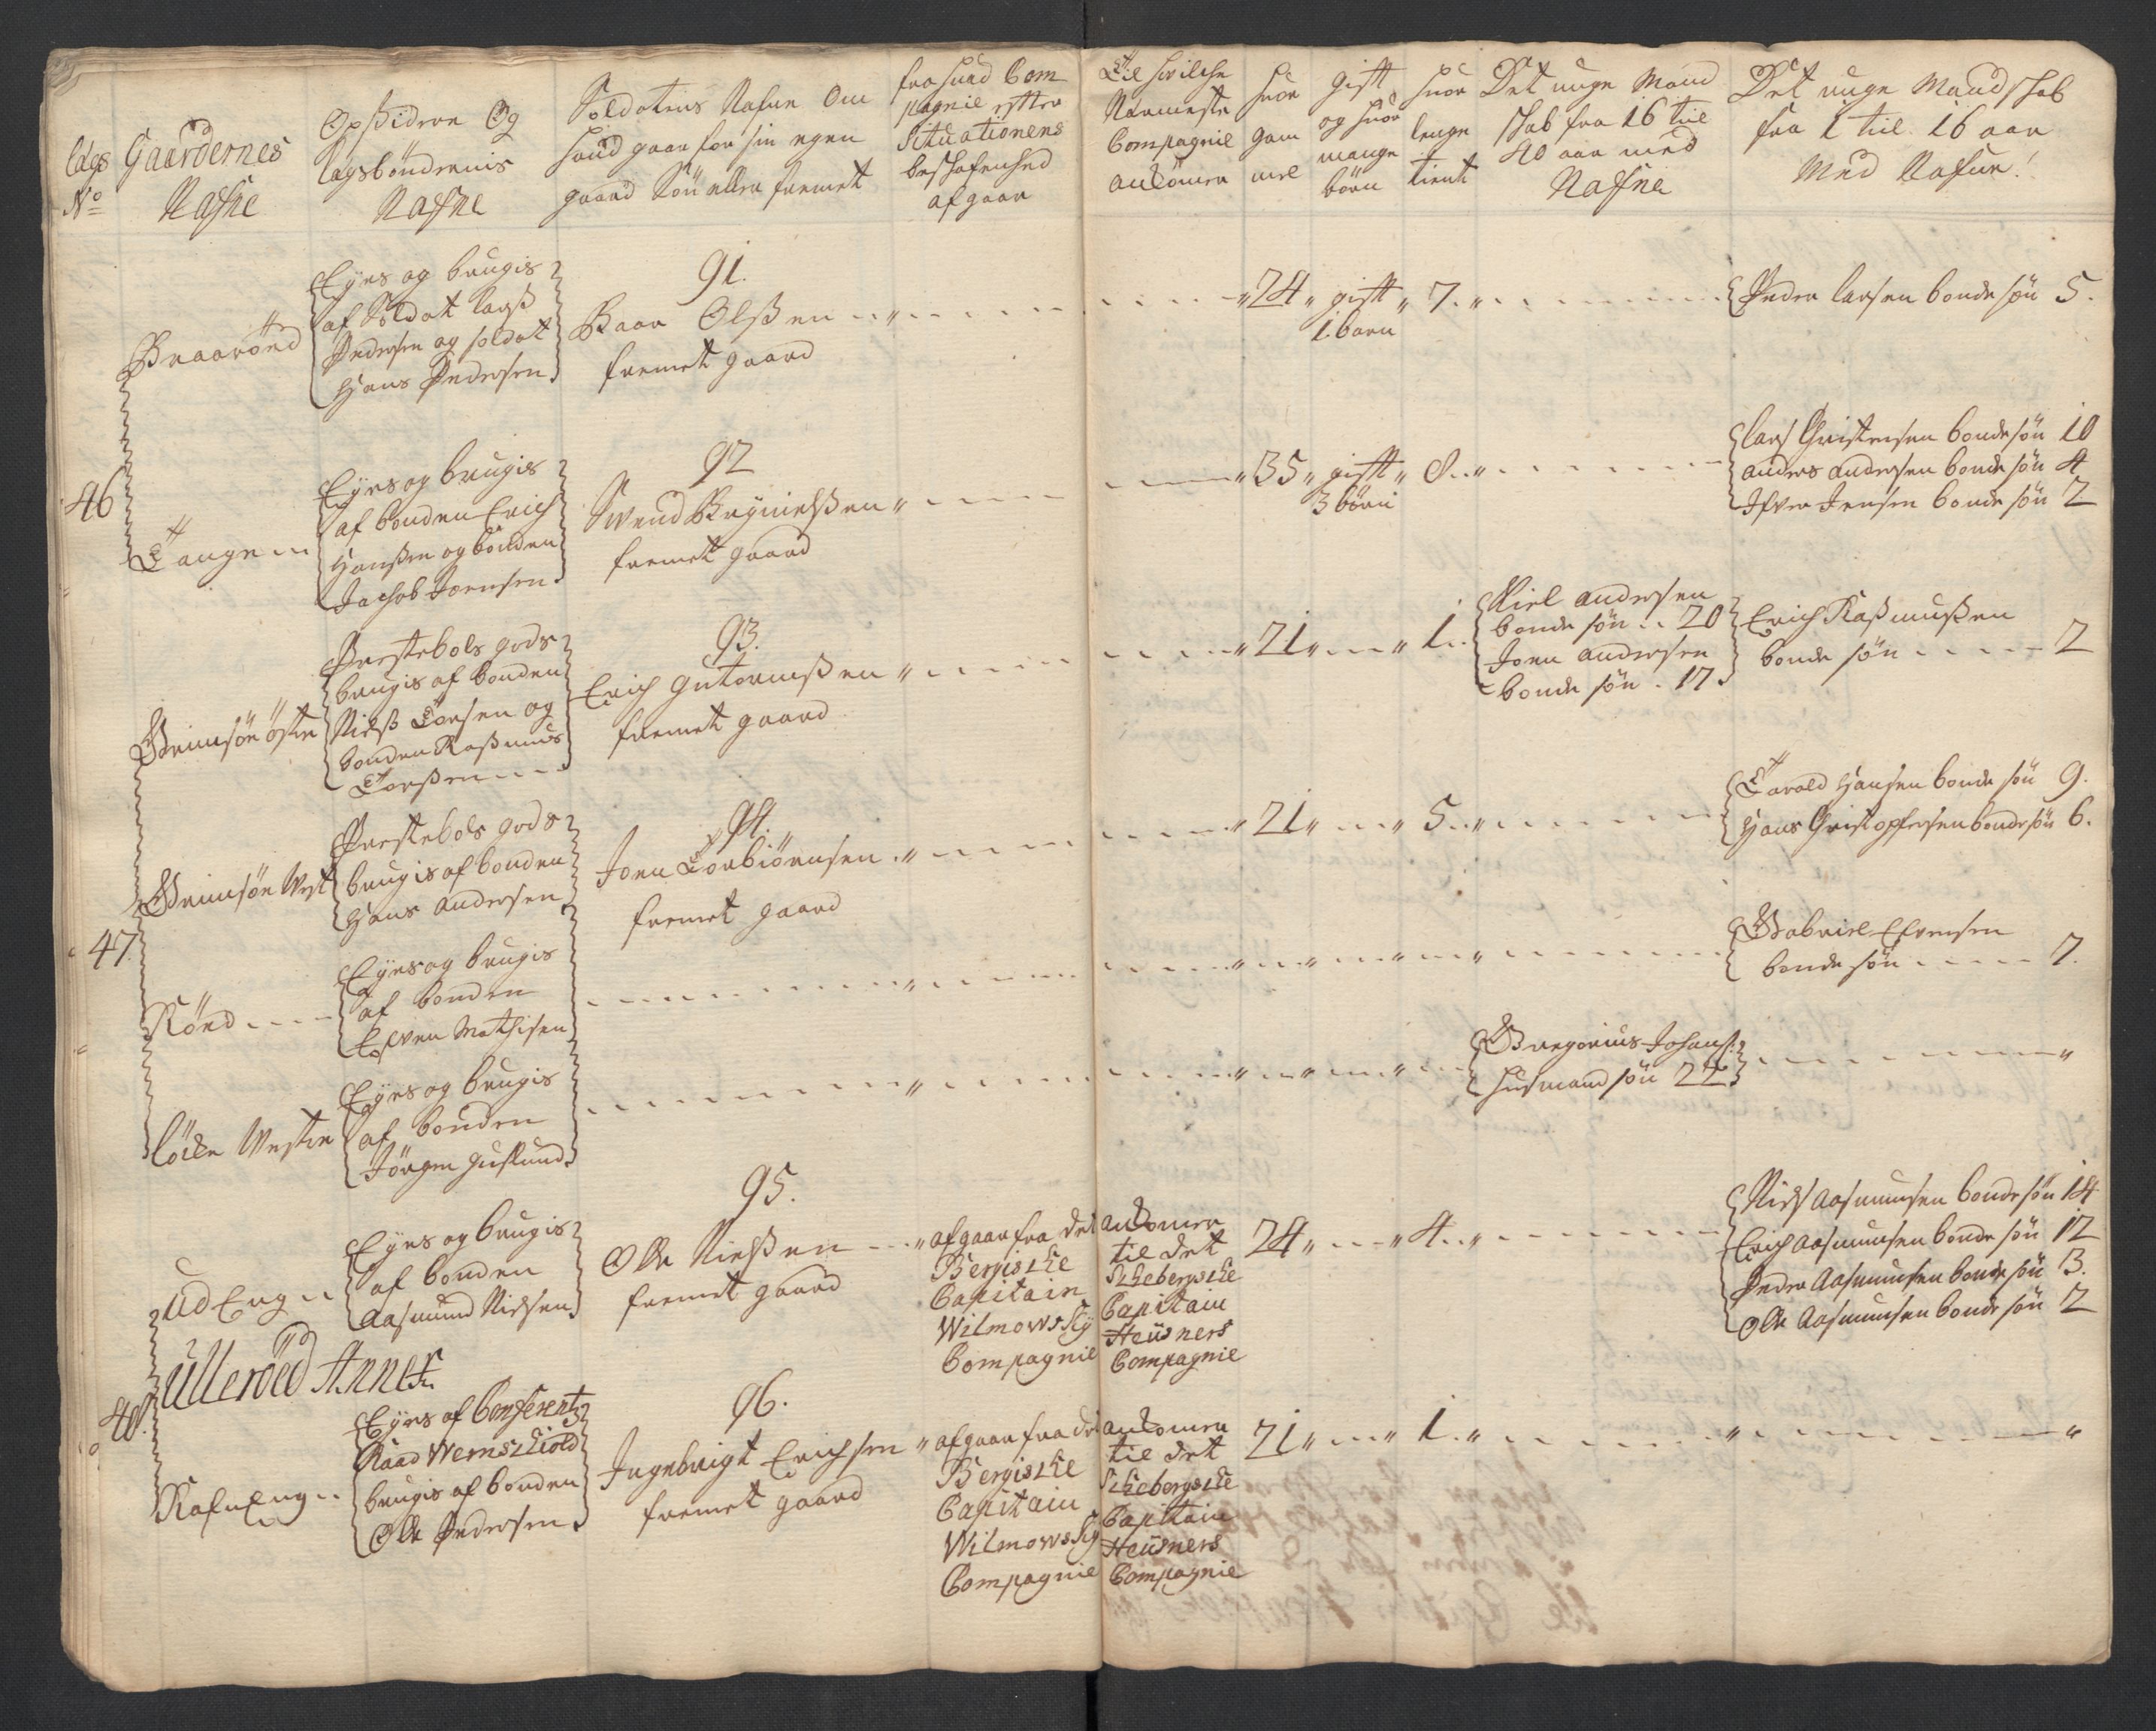 Lægs
No
Gaardernes
Nafne
Opsidere Og
lægsbøndernis
Nafne
Soldatens Nafne Om
hand gaar for sin egen
gaard Søn eller fremet
fra huad Com
pagnie efter
Situationens
beskafenhed
afgaar
Til hvilche
Nærmeste
Compagnie
ankomen
huor
gam
mel
gift
og huor
mange
børn
huor
lenge
tient
Det unge Mand
skab fra 16 til
40 aar med
Nafne
Det unge Mandskab
fra 1 til 16 aar
Med Nafne!
46
Braarød
Eyes og brugis
af Soldat Larß
Pedersen og soldat
Hans Pedersen
91.
Baar Olßen
fremet gaard
24
gift
1 barn
7
Peder Larsen bonde søn 5.
Tange
Eyes og brugis
af bonden Erich
Hanßen og bonden
Jachob Joensen
92
Swend Brynielßen
fremet gaard
35
gift
3 børn
8
Lars Christensen bonde søn 10
Anders Andersen bonde søn 4
Ifver Jensen bonde søn 2
47.
Grimsøn østre
Prestebols gods
brugis af bonden
Nielß Torsen og
bonden Raßmus
Torßen
93.
Erich Gutormßen
fremet gaard
21
1
Niel Andersen
bonde søn 20
Joen Andersen
bonde søn 17
Erich Raßmußen
bonde søn 2
Grimsøn West
Prestebols gods
brugis af bonden
Hans Andersen
94.
Joen Torbiørnsen
fremet gaard
21
5
Tarald Hansen bonde søn 9.
Hans Christophersen bonde søn 6.
Rønd
Eyes og brugis
af bonden
Efven Mathisen
Gabriel Efvensen
bonde søn 7.
Løken Westre
Eyes og brugis
af bonden
Jørgen Guslund
Gregorius Johans:
husmand søn 22
48.
Ud Eng
Eyes og brugis
af bonden
Aasmund Nielsen
95.
Olle Nielßen
fremet gaard
afgaar fra det
Bergiske
Capitain
Wilmowsky
Compagnie
ankomen
til det
Skkebergske
Capitain
Heüsners
Compagnie
24
4
Niels Aasmunsen bonde søn 14
Erich Aasmunsen bonde søn 12
Peder Aasmunsen bonde søn 3.
Olle Aasmunsen bonde søn 2
Ullerøed Annex
RafnEng
Eyes af Conferentz
Raad Wernskiold
brugis af bonden
Olle Pedersen
96.
Ingebrigt Erichsen
fremet gaard
afgaar fra det
Bergiske
Capitain
Wilmowsky
Compagnie
ankomen
til det
Skkebergske
Capitain
Heüsners
Compagnie
21
1